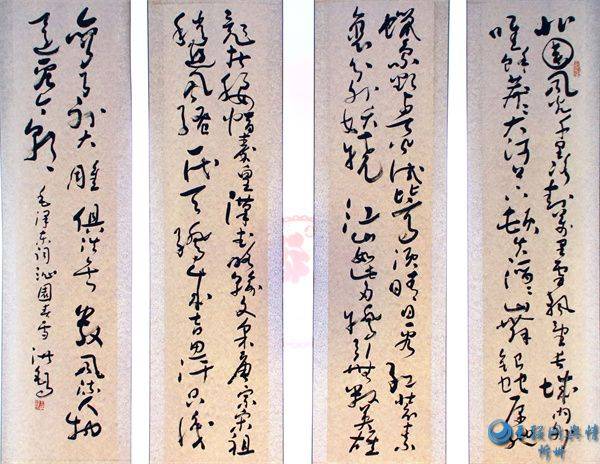 北国风光千里冰封万里雪飘望长城内外
唯馀莽莽大河上下顿失滔滔山舞银蛇原驰
蜡象欲与天公试比高须晴日看红装素
裹分外妖娆江山如此多娇引无数英雄
竞折腰惜秦皇汉武略输文采唐宗宋祖
稍逊风骚一代天骄成吉思汗只识
弯弓射大雕俱往矣数风流人物
还看今朝
毛泽东词沁园春雪
互联网舆情
忻州